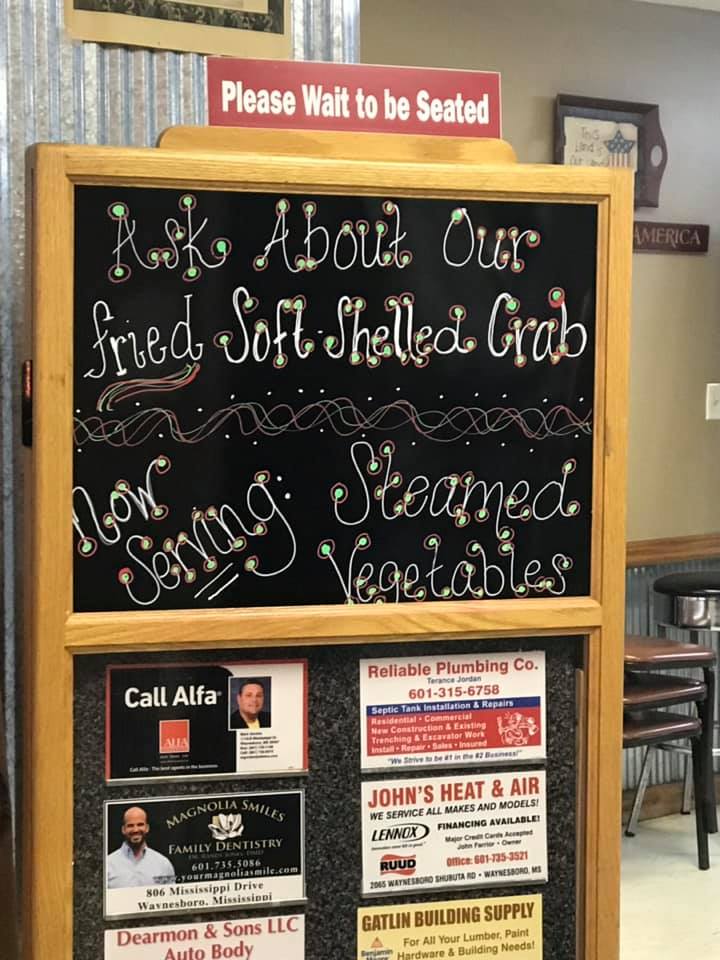 Please Wait to be Seated
This
Land is
AMERICA
Ask About Our
fried Soft-Shelled Crab
Now
Serving:
Steamed
Vegetables
Call Alfa
ALFA
Call Alfa - The best agents in the business
Reliable Plumbing Co.
Terance Jordan
601-315-6758
Septic Tank Installation & Repairs
Residential • Commercial
New Construction & Existing
Trenching & Excavator Work
Install • Repair • Sales • Insured
"We Strive to be #1 in the #2 Business!"
MAGNOLIA SMILES
FAMILY DENTISTRY
601.735.5086
yourmagnoliasmile.com
806 Mississippi Drive
Waynesboro, Mississippi
JOHN'S HEAT & AIR
WE SERVICE ALL MAKES AND MODELS!
LENNOX
FINANCING AVAILABLE!
Major Credit Cards Accepted
John Ferrior - Owner
RUUD
Office: 601-735-3521
2065 WAYNESBORO SHUBUTA RD • WAYNESBORO, MS
Dearmon & Sons LLC
Auto Body
GATLIN BUILDING SUPPLY
Benjamin
For All Your Lumber, Paint
Hardware & Building Needs!